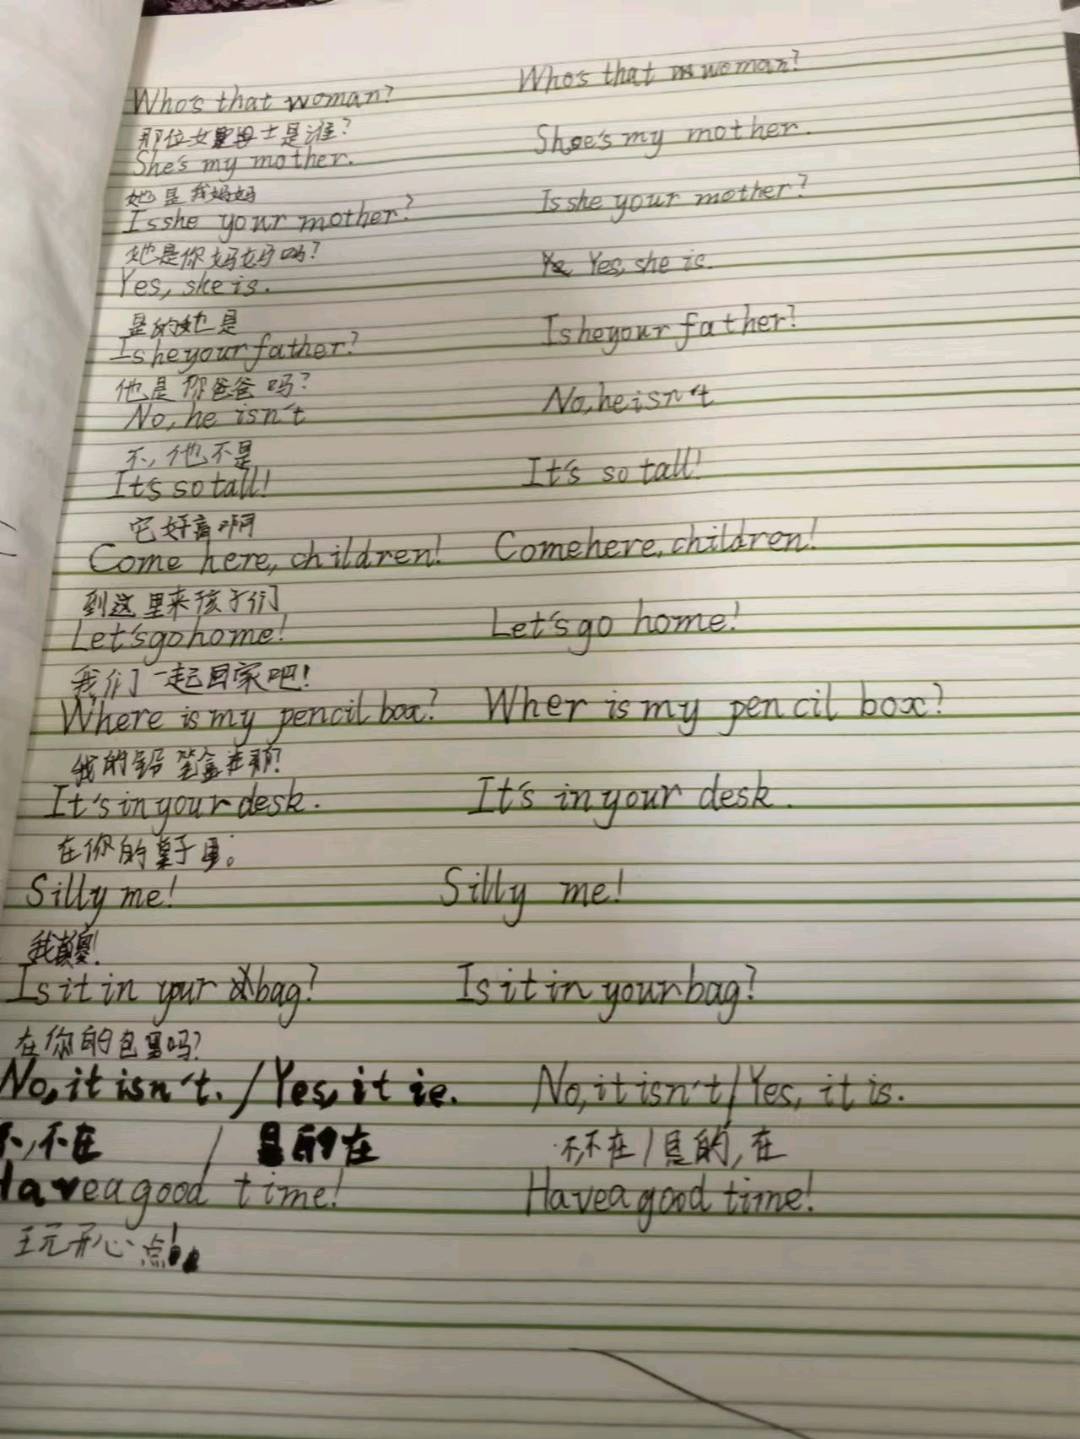 Who's that woman? Who's that woman?
那位女士是谁?
She's my mother. She's my mother.
她是我妈妈
Is she your mother? Is she your mother?
她是你妈妈吗?
Yes, she is. Yes, she is.
是的她是
Is he your father? Is he your father?
他是你爸爸吗?
No, he isn't No, he isn't
不,他不是
It's so tall! It's so tall!
它好高啊
Come here, children! Come here, children!
到这里来孩子们
Let's go home! Let's go home!
我们一起回家吧!
Where is my pencil box? Wher is my pencil box?
我的铅笔盒在那?
It's in your desk. It's in your desk.
在你的桌子里。
Silly me! Silly me!
我真傻!
Is it in your bag? Is it in your bag?
在你的包里吗?
No, it isn't. / Yes, it is. No, it isn't / Yes, it is.
不,不在 / 是的在 不,不在 / 是的,在
Have a good time! Have a good time!
玩开心点!